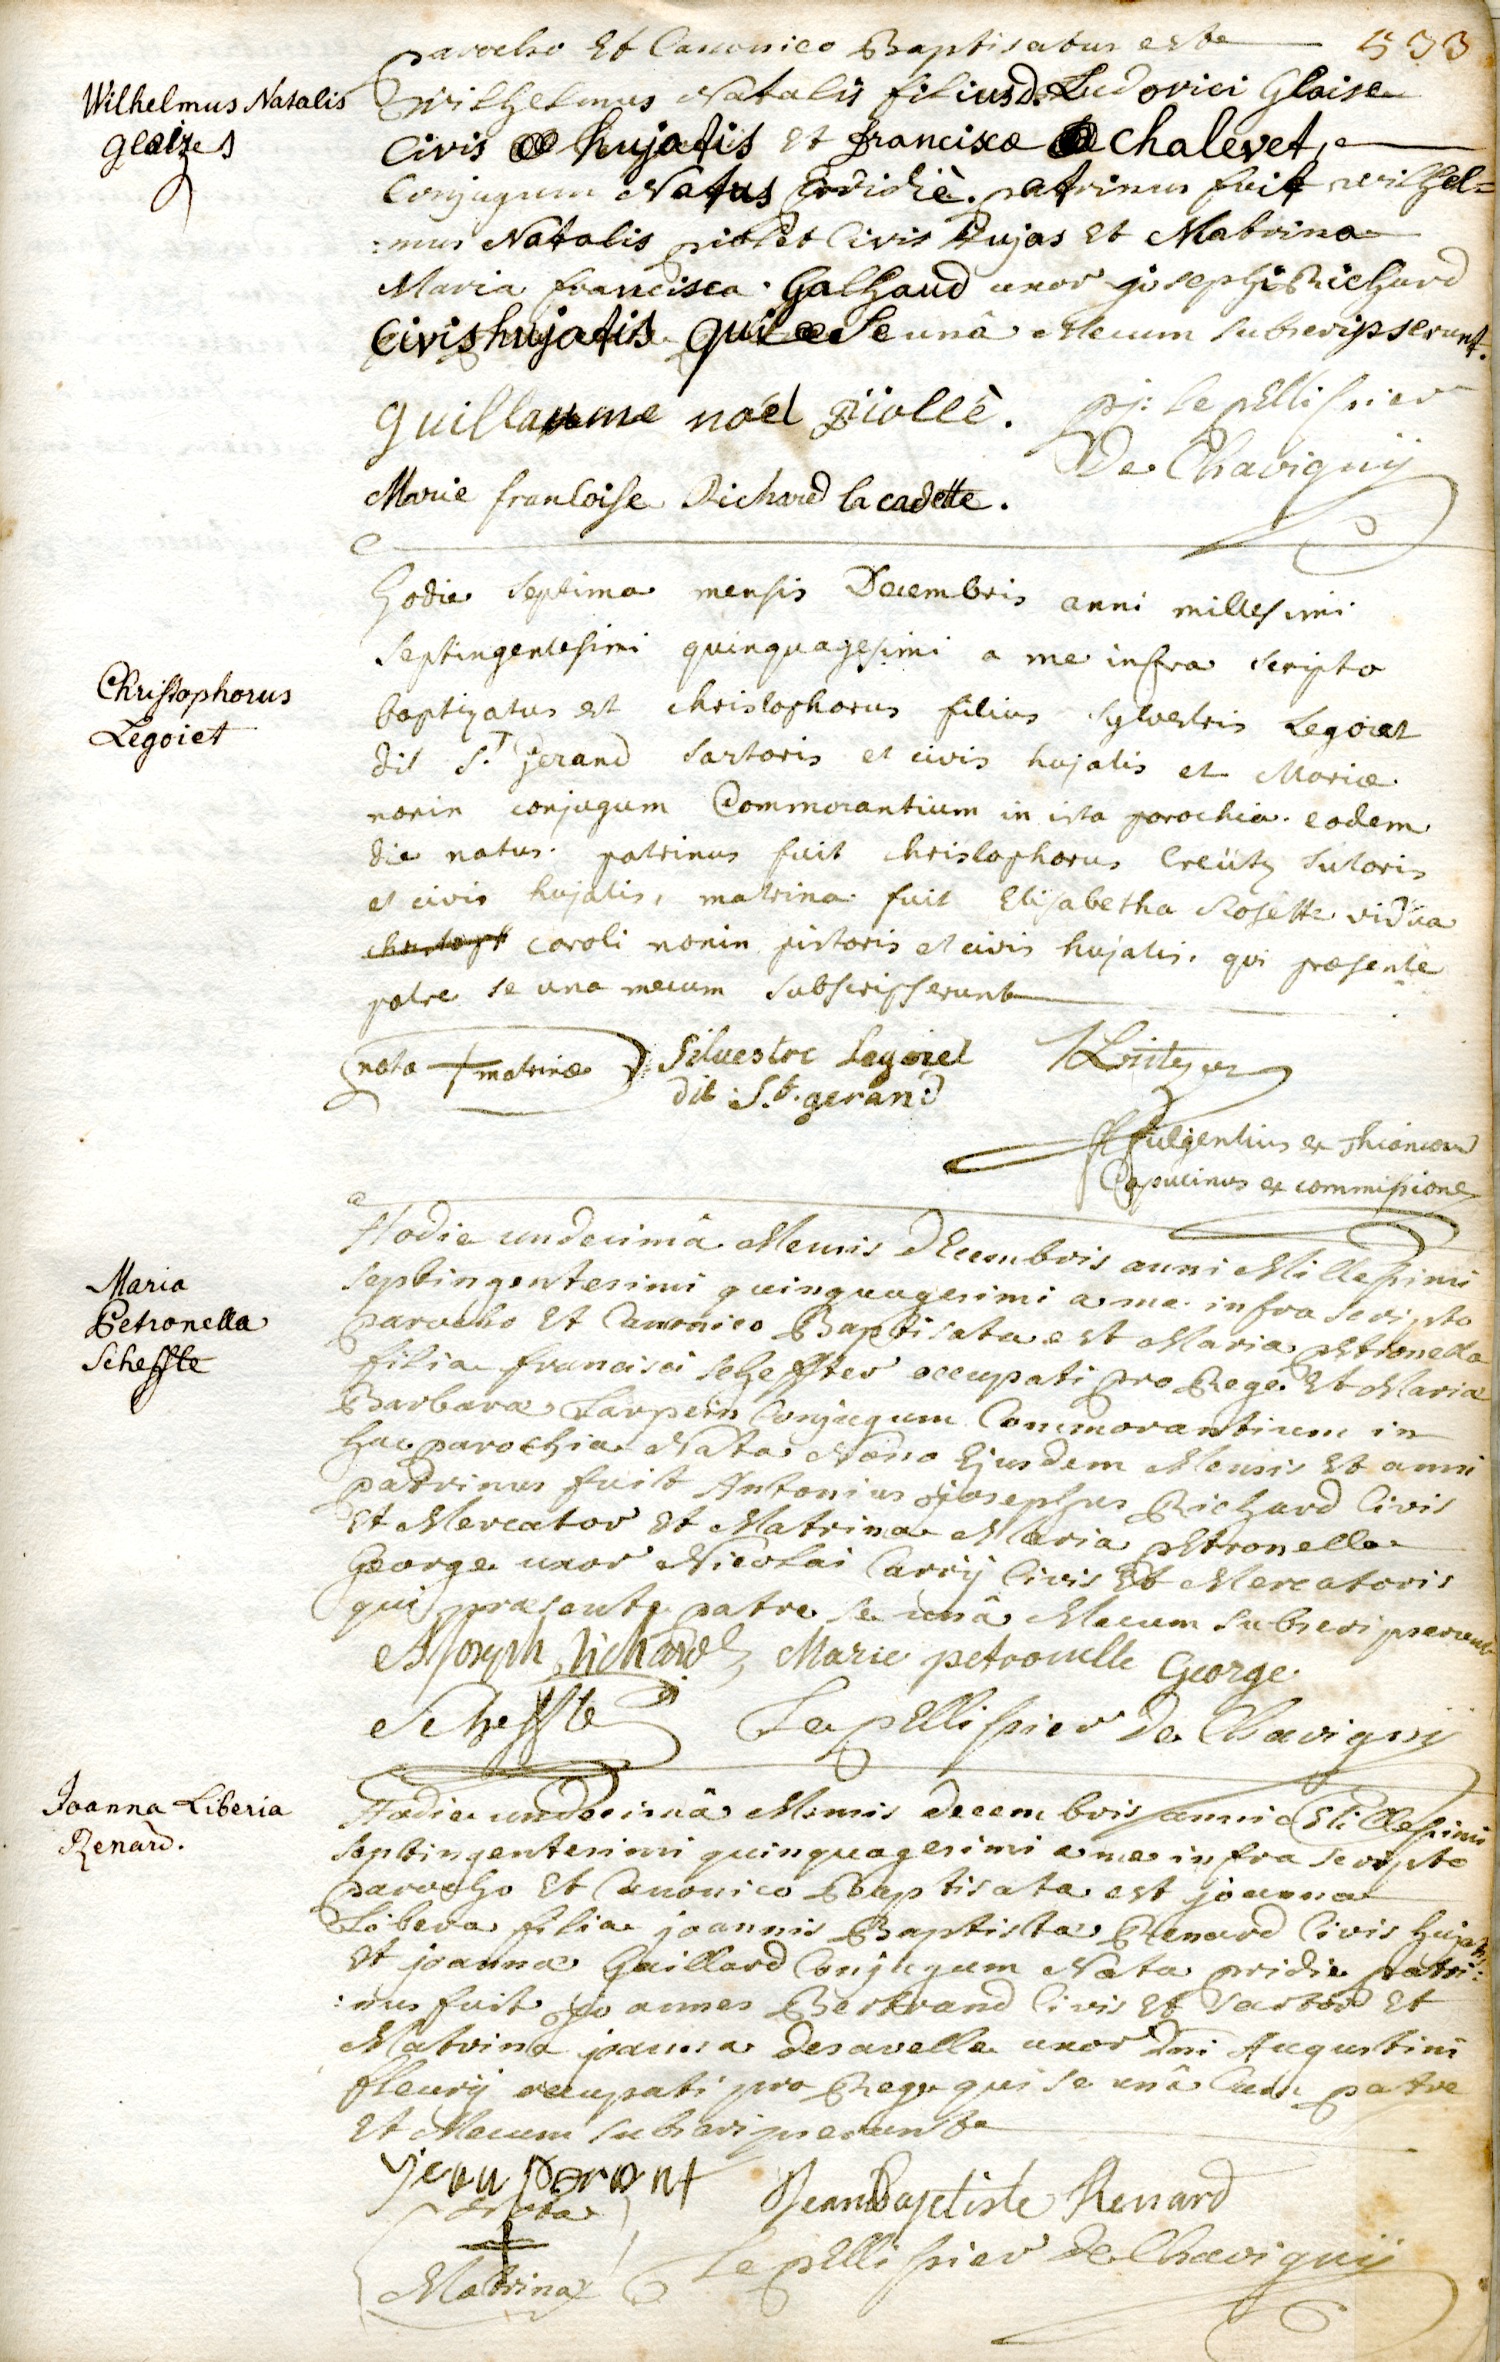 533
parocho Et Canonico Baptisatus est
Wilhelmus Natalis
Gleizes
Wilhelmus Natalis filius d. Ludovici Glaise
Civis hujatis et francisca chalevet,
Conjugum Natus pridiè. patrinus fuit wilhel=
:mus Natalis piolet Civis hujas et Matrina
Maria francisca Galhaud uxor josephi Richard
Civis hujatis qui se unâ Mecum subscripserunt.
guillaume noél piollè.
pj: Le pEllissier
De Chavignij
Marie francoise Richard la cadette.
Christophorus
Legoiet
hodie septima mensis Decembris anni millesimi
septingentesimi quinquagesimi a me infra scripto
baptizatus est christophorus filius sylvestris Legoiet
dit S.t gerand sartoris et civis hujatis et Mariæ
nonin conjugum Commorantium in ista parochia. eodem
die natus. patrinus fuit christophorus Creütz sutoris
et civis hujatis, matrina fuit Elisabetha Rosette vidua
christoph caroli nonin pistoris et civis hujatis. qui præsente
patre se una mecum subscripserunt
nota + matrinæ
Silvestre Legoiet
dit S.t gerand
f fulgentius ex
Capucinus ex commissione
Maria
Petronella
Scheffte
Hodie undecimâ Mensis dEcembris anni Millesimi
septingentesimi quinquagesimi a me infra scripto
parocho Et Canonico Baptisata est Maria pEtronella
filia francisci scheffter occupati pro Rege Et Maria
Barbara Larpein Conjugum Commorantium in
hac parochia Nata Nono Ejusdem Mensis Et anni
patrinus fuit Antonius josephus Richard Civis
Et Mercator Et Matrina Maria pEtronella
George uxor Nicolai Carrij Civis Et Mercatoris
qui præsente patre se unâ Mecum subscripserunt
A Joseph richard, Marie petronelle George
Scheffte
Le pEllissier De Chavignij
Joanna Liberia
Renard.
Hodie undecimâ Mensis decembris anni Millesimi
septingentesimi quinquagesimi a me infra scripto
parocho Et Canonico Baptisata est joanna
Libera filia joannis Baptista Renard Civis hujatis
Et joanna Gaillard Conjugum Nata pridie patri:
:nus fuit joannes Bertrand Civis Et sartor Et
Matrina joanna Desavelle uxor Dni Augustini
fleurij occupati pro Rege qui se unâ Cum patre
Et Mecum subscripserunt
Jean
JeanBaptiste Renard
nota
+
Matrina
Le pEllissier De Chavignij